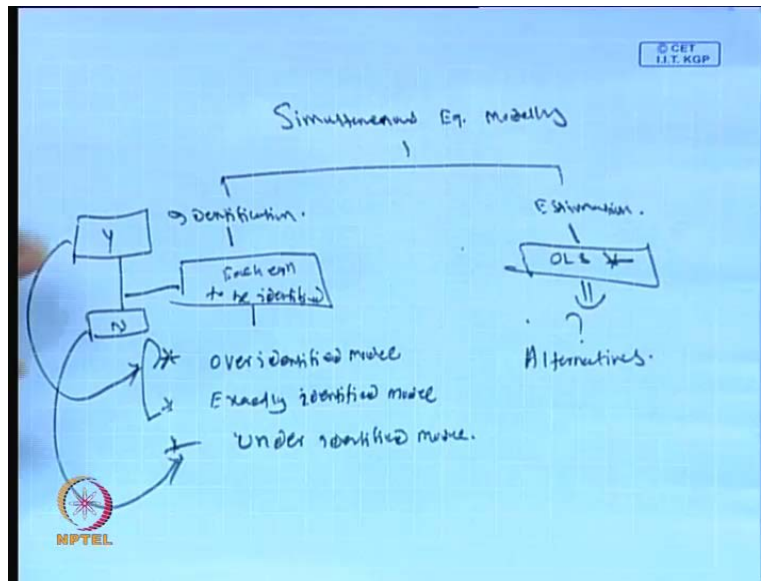 © CET
I.I.T. KGP
Simultaneous Eq. Modelling
Identification.
Estimation.
Y
Each eqn
to be identified
OLS
N
?
Over identified model
Alternatives.
Exactly identified model
Under identified model.
NPTEL